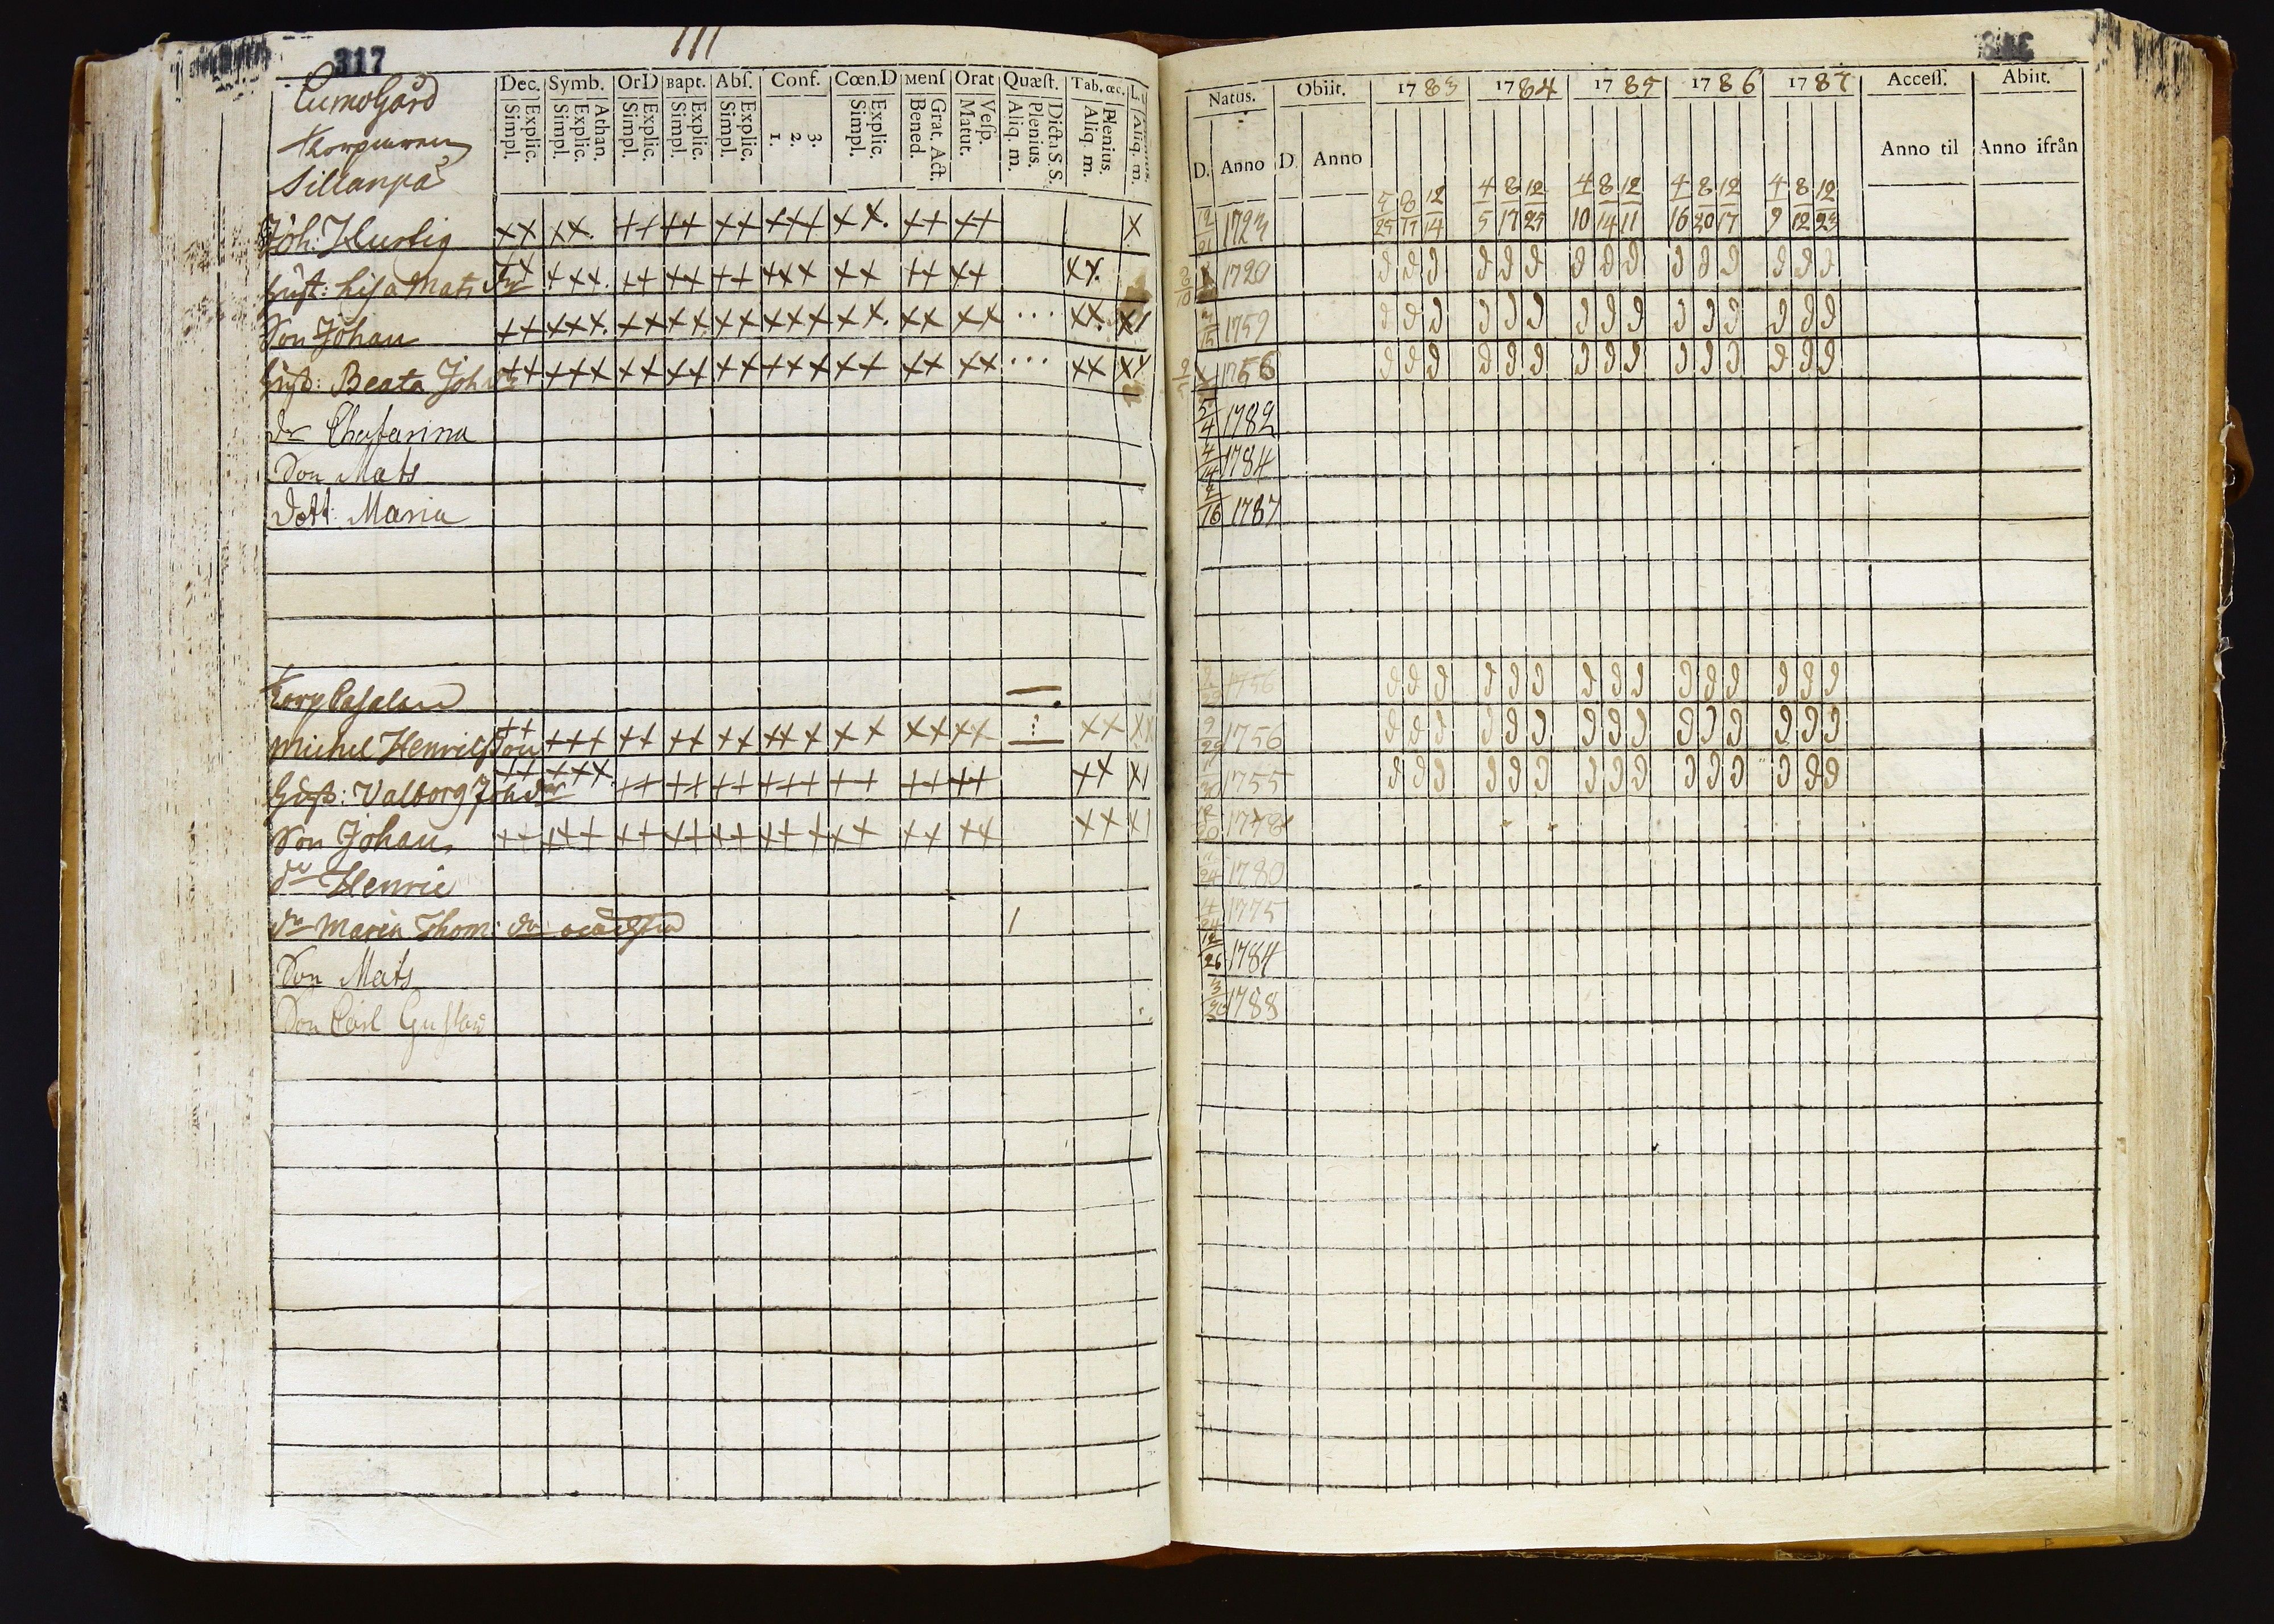 317
111
Cumogård
Torpuren
Sillanpä
Dec. Symb. OrD Bapt. Abſ. Conf. Cœn.D Menſ Orat Quæſt. Tab. œc.
Explic. Simpl. Athan. Explic. Simpl. Explic. Simpl. Explic. Simpl. Explic. Simpl. 3. 2. 1. Explic. Simpl. Grat. Act. Bened. Veſp. Matut. Dicta S. S. Plenius. Aliq. m. Plenius. Aliq. m. Aliq. m.
Joh: Hurtig
Hust: Lisa Mats dr
Son Johan
Hust: Beata Joh dr
dr Chatarina
Son Mats
Dott. Maria
Torp
Michel Henricsson
Hust: Valborg Joh dr
Son Johan
dn Henric
dr Maria Thom: dr
Son Mats
Son Carl Gustav
Natus. Obiit. 1783 1784 1785 1786 1787 Acceſſ. Abiit.
D. Anno D. Anno Anno til Anno ifrån
5 8 12 4 8 12 4 8 12 4 8 12 4 8 12
25 17 14 5 17 25 10 14 11 16 20 17 9 12 23
12/21 1723
1720
1759
1756
5/4 1782
4/14 1784
2/16 1787
1756
9/29 1756
1755
1778
1780
4/24 1775
12/26 1784
3/20 1788